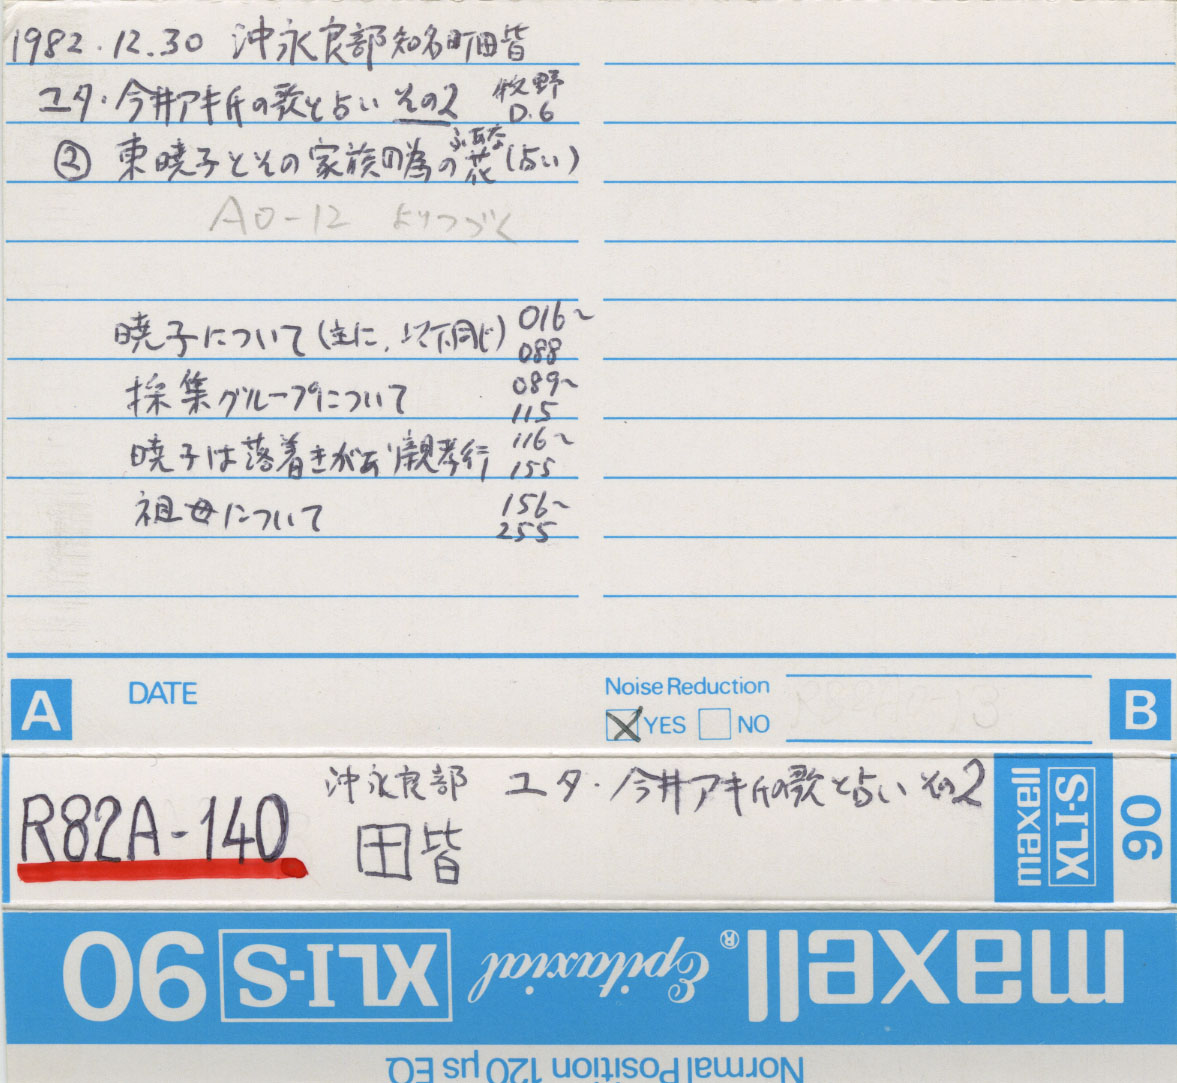 1982.12.30 沖永良部知名町田皆
ユタ・今井アキ氏の歌と占い その2 牧野 D.6
② 東暁子とその家族の為の花(占い)
ふあな
A0-12 よりつづく
暁子について(主に、以下同じ) 016~088
採集グループについて 089~115
暁子は落着きがあり親孝行 116~155
祖母について 156~255
A DATE
Noise Reduction
YES NO
B
R82A-140
沖永良部 ユタ・今井アキ氏の歌と占い その2
田皆
maxell XLI-S 90
maxell® Epitaxial XLI-S 90
Normal Position 120 μs EQ